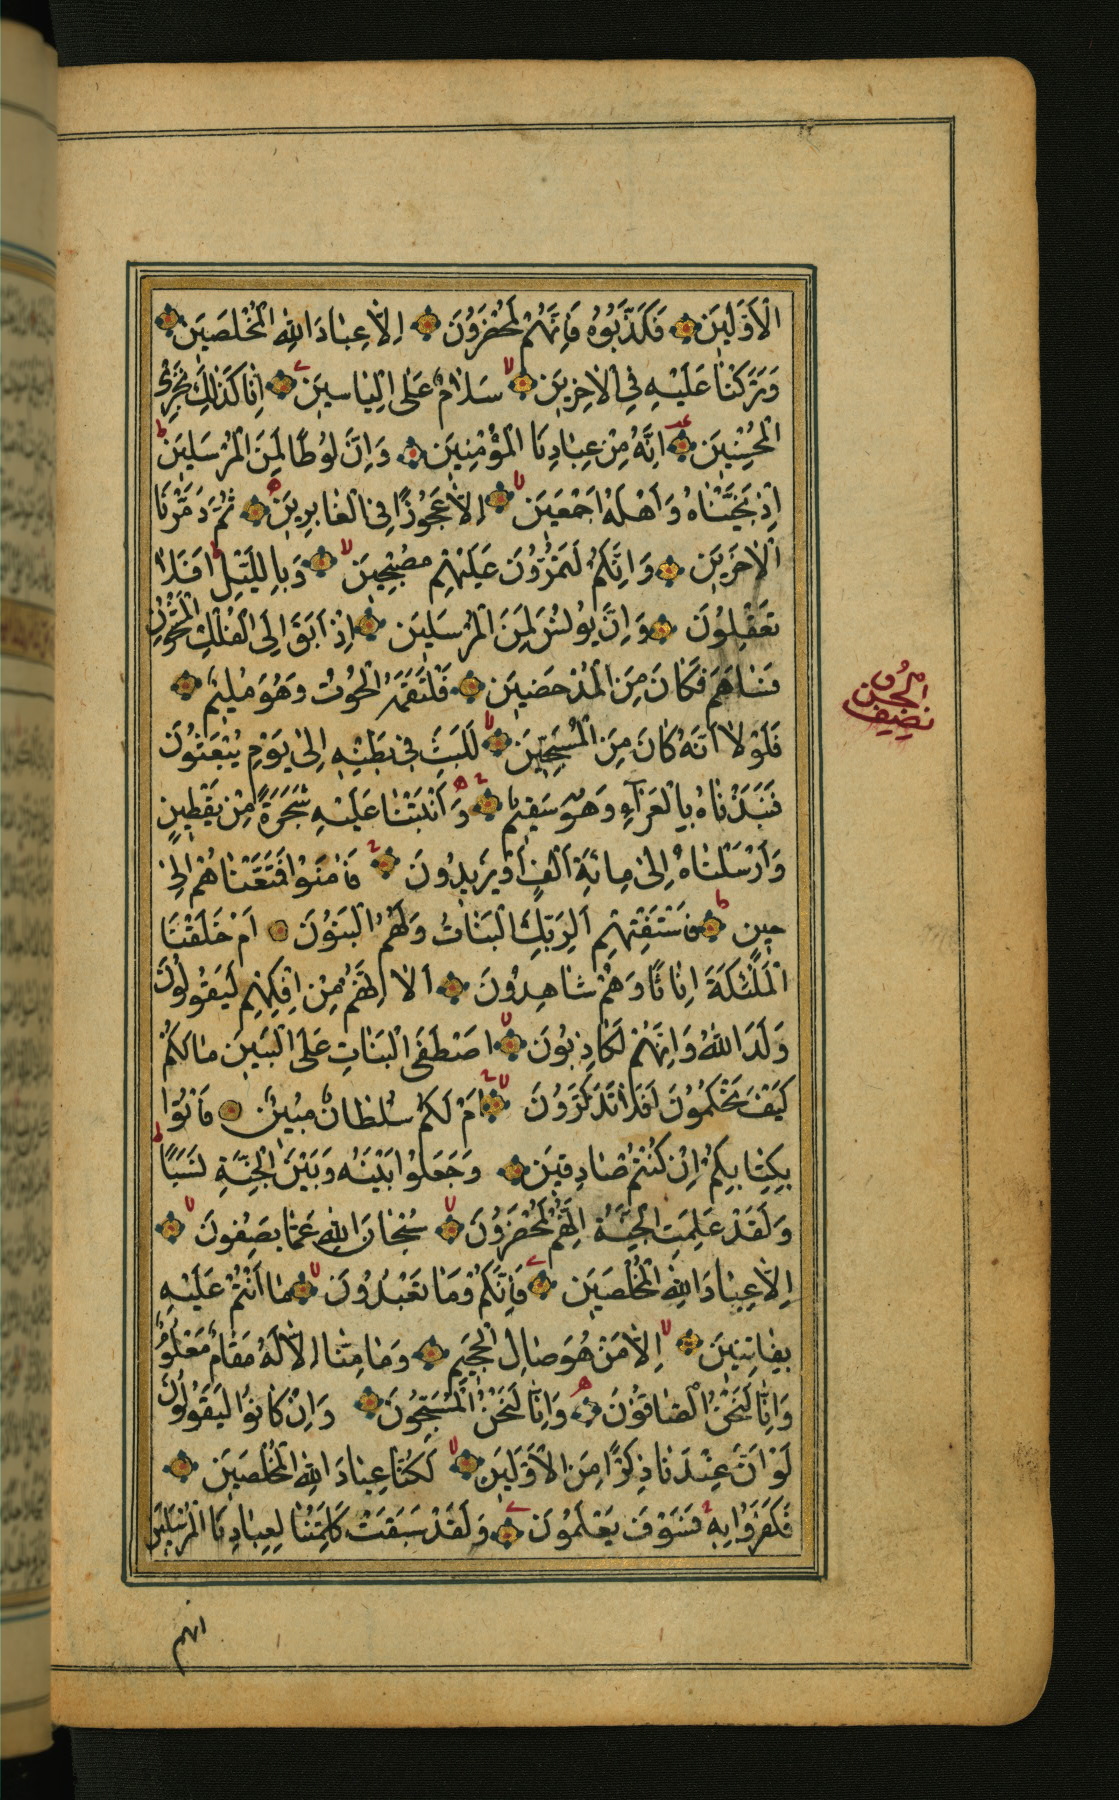 الْاَوَّلِينَ فَكَذَّبُوهُ فَاِنَّهُمْ لَمُحْضَرُونَ اِلَّا عِبَادَ اللهِ الْمُخْلَصِينَ
وَتَرَكْنَا عَلَيْهِ فِي الْاٰخِرِينَ سَلَامٌ عَلٰى اِلْيَاسِينَ اِنَّا كَذٰلِكَ نَجْزِي
الْمُحْسِنِينَ اِنَّهُ مِنْ عِبَادِنَا الْمُؤْمِنِينَ وَاِنَّ لُوطًا لَمِنَ الْمُرْسَلِينَ
اِذْ نَجَّيْنَاهُ وَاَهْلَهُ اَجْمَعِينَ اِلَّا عَجُوزًا فِي الْغَابِرِينَ ثُمَّ دَمَّرْنَا
الْاٰخَرِينَ وَاِنَّكُمْ لَتَمُرُّونَ عَلَيْهِمْ مُصْبِحِينَ وَبِاللَّيْلِ اَفَلَا
تَعْقِلُونَ وَاِنَّ يُونُسَ لَمِنَ الْمُرْسَلِينَ اِذْ اَبَقَ اِلَى الْفُلْكِ الْمَشْحُونِ
فَسَاهَمَ فَكَانَ مِنَ الْمُدْحَضِينَ فَالْتَقَمَهُ الْحُوتُ وَهُوَ مُلِيمٌ
فَلَوْلَا اَنَّهُ كَانَ مِنَ الْمُسَبِّحِينَ لَلَبِثَ فِي بَطْنِهِ اِلٰى يَوْمِ يُبْعَثُونَ
فَنَبَذْنَاهُ بِالْعَرَاءِ وَهُوَ سَقِيمٌ وَاَنْبَتْنَا عَلَيْهِ شَجَرَةً مِنْ يَقْطِينٍ
وَاَرْسَلْنَاهُ اِلٰى مِائَةِ اَلْفٍ اَوْ يَزِيدُونَ فَاٰمَنُوا فَمَتَّعْنَاهُمْ اِلٰى
حِينٍ فَاسْتَفْتِهِمْ اَلِرَبِّكَ الْبَنَاتُ وَلَهُمُ الْبَنُونَ اَمْ خَلَقْنَا
الْمَلٰئِكَةَ اِنَاثًا وَهُمْ شَاهِدُونَ اَلَا اِنَّهُمْ مِنْ اِفْكِهِمْ لَيَقُولُونَ
وَلَدَ اللهُ وَاِنَّهُمْ لَكَاذِبُونَ اصْطَفَى الْبَنَاتِ عَلَى الْبَنِينَ مَا لَكُمْ
كَيْفَ تَحْكُمُونَ اَفَلَا تَذَكَّرُونَ اَمْ لَكُمْ سُلْطَانٌ مُبِينٌ فَاْتُوا
بِكِتَابِكُمْ اِنْ كُنْتُمْ صَادِقِينَ وَجَعَلُوا بَيْنَهُ وَبَيْنَ الْجِنَّةِ نَسَبًا
وَلَقَدْ عَلِمَتِ الْجِنَّةُ اِنَّهُمْ لَمُحْضَرُونَ سُبْحَانَ اللهِ عَمَّا يَصِفُونَ
اِلَّا عِبَادَ اللهِ الْمُخْلَصِينَ فَاِنَّكُمْ وَمَا تَعْبُدُونَ مَا اَنْتُمْ عَلَيْهِ
بِفَاتِنِينَ اِلَّا مَنْ هُوَ صَالِ الْجَحِيمِ وَمَا مِنَّا اِلَّا لَهُ مَقَامٌ مَعْلُومٌ
وَاِنَّا لَنَحْنُ الصَّافُّونَ وَاِنَّا لَنَحْنُ الْمُسَبِّحُونَ وَاِنْ كَانُوا لَيَقُولُونَ
لَوْ اَنَّ عِنْدَنَا ذِكْرًا مِنَ الْاَوَّلِينَ لَكُنَّا عِبَادَ اللهِ الْمُخْلَصِينَ
فَكَفَرُوا بِهِ فَسَوْفَ يَعْلَمُونَ وَلَقَدْ سَبَقَتْ كَلِمَتُنَا لِعِبَادِنَا الْمُرْسَلِينَ
انهم